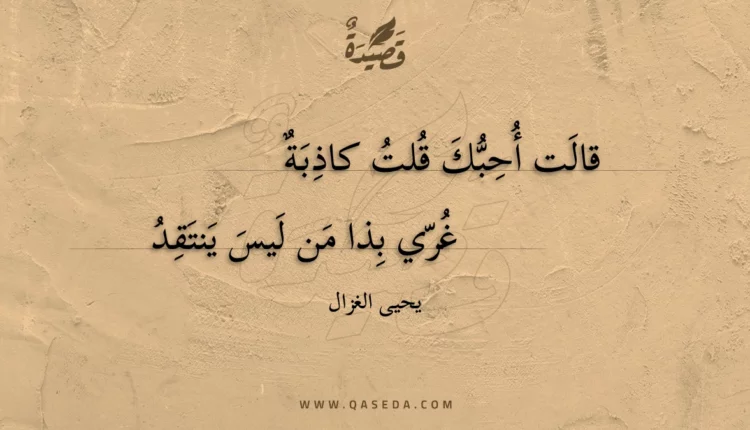 قَصِيدَةٌ
قالَت أُحِبُّكَ قُلتُ كاذِبَةٌ
غُرّي بِذا مَن لَيسَ يَنتَقِدُ
يحيى الغزال
WWW.QASEDA.COM